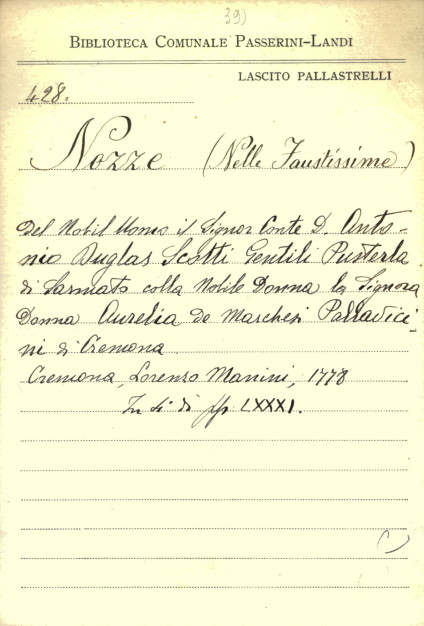 39)
BIBLIOTECA COMUNALE PASSERINI-LANDI
LASCITO PALLASTRELLI
428.
Nozze (Nelle Faustissime)
del Nobil Uomo il Signor Conte D. Anto-
nio Duglas Scotti Gentili Pusterla
di Sarmato colla Nobile Donna la Signora
Donna Aurelia de Marchesi Pallavici-
ni di Cremona
Cremona, Lorenzo Manini, 1778
In 4° di pp LXXXI.
( )